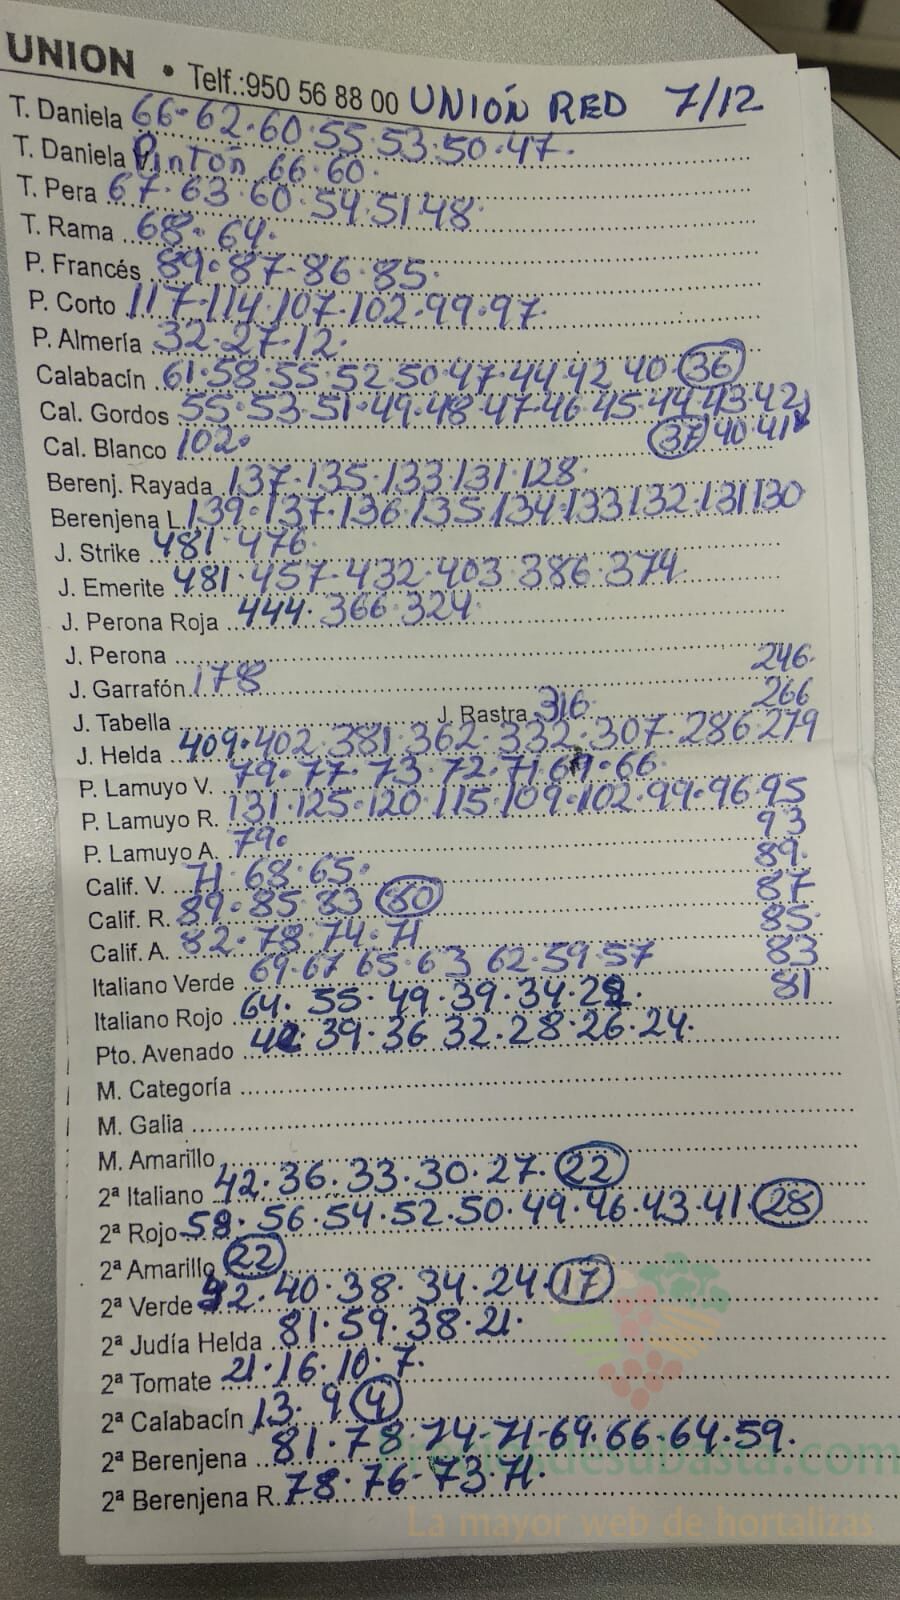 UNION • Telf.:950 56 88 00 UNIÓN RED 7/12
T. Daniela 66-62.60.55.53.50.47.
T. Daniela Pintón 66.60.
T. Pera 67.63.60.54.51.48.
T. Rama 68.64.
P. Francés 89.87-86.85.
P. Corto 117.114.107.102.99.97.
P. Almería 32.27.12.
Calabacín 61.58.55.52.50.47.44.42.40.36
Cal. Gordos 55.53.51.49.48.47.46.45.44.43.42
Cal. Blanco 102. 37 40.41
Berenj. Rayada 137.135.133.131.128
Berenjena L. 139.137.136.135.134.133 132.131 130
J. Strike 481.476.
J. Emerite 481.457-432.403.386.374
J. Perona Roja 444.366.324.
J. Perona
J. Garrafón 178 246.
J. Tabella J. Rastra 316. 266
J. Helda 409.402.381.362.332.307.286.279
P. Lamuyo V. 79.77.73.72.71 69.66.
P. Lamuyo R. 131.125.120.115.109.102.99.96.95
P. Lamuyo A. 79. 93
Calif. V. 71.68.65. 89.
Calif. R. 89.85.83 80 87
Calif. A. 82.78.74.71 85.
Italiano Verde 69.67 65.63 62.59.57 83
Italiano Rojo 64.55.49.39.34. 81
Pto. Avenado 39.36 32.28.26.24.
M. Categoría
M. Galia
M. Amarillo
2ª Italiano 42.36.33.30.27.22
2ª Rojo 58.56.54.52.50.49.46.43.41.28
2ª Amarillo 22
2ª Verde 42.40.38.34.24.17
2ª Judía Helda 81.59.38.21.
2ª Tomate 21.16.10.7.
2ª Calabacín 13.9 4
2ª Berenjena 81.78.74-71-69.66.64.59.
2ª Berenjena R. 78.76-73.71.
Preciosdesubasta.com
La mayor web de hortalizas